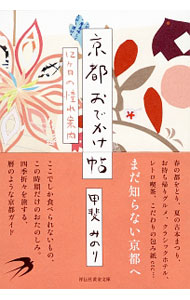 京都おでかけ帖
12ヶ月の憧れ案内
甲斐みのり
まだ知らない京都へ
春の都をどり、夏の古本まつり、
お持ち帰りグルメ、クラシックホテル、
レトロ喫茶、こだわりの包み紙etc…
ここでしか食べられないもの、
この時期だけのおたのしみ。
四季折々を旅する、
暦のような京都ガイド
祥伝社黄金文庫